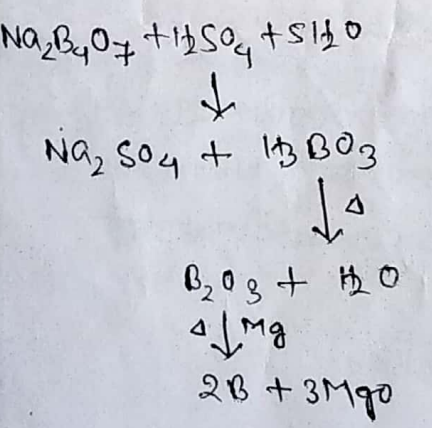 Na₂B₄O₇ + H₂SO₄ + 5H₂O
↓
Na₂SO₄ + H₃BO₃
↓ Δ
B₂O₃ + H₂O
Δ ↓ Mg
2B + 3MgO